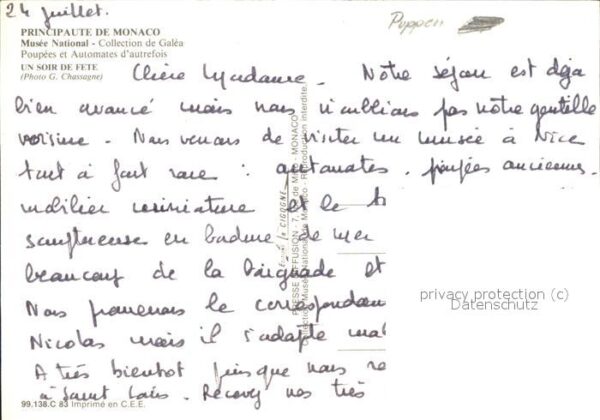 24 juillet.
Puppen
PRINCIPAUTE DE MONACO
Musée National - Collection de Galéa
Poupées et Automates d'autrefois
UN SOIR DE FETE
(Photo G. Chassagne)
Chère Madame. Notre séjour est déjà
bien avancé mais nous n'oublions pas notre gentille
voisine. Nous venons de visiter un musée à Nice
tout à fait rare : automates. poupées anciennes.
mobilier miniature et le
somptueuse en bordure de mer
beaucoup de la baignade et
Nous prenons le
Nicolas mais il s'adapte mal
A très bientôt puisque nous
à Saint Recevez nos très
PRESSE DIFFUSION - 7, de Millo - MONACO
Musée National de Monaco - Reproduction interdite.
la CIGOGNE
privacy protection (c)
Datenschutz
99.138.C 83 Imprimé en C.E.E.